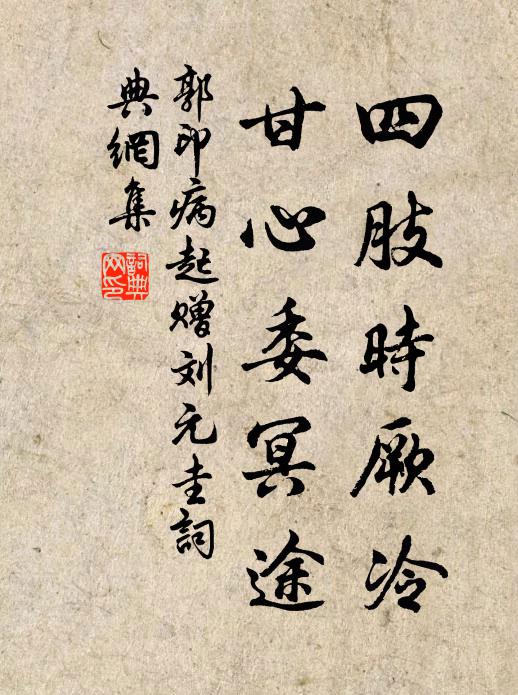 四肢時厥冷
甘心委冥途
郭印病起赠刘元圭詞
典網集
詞典
网印